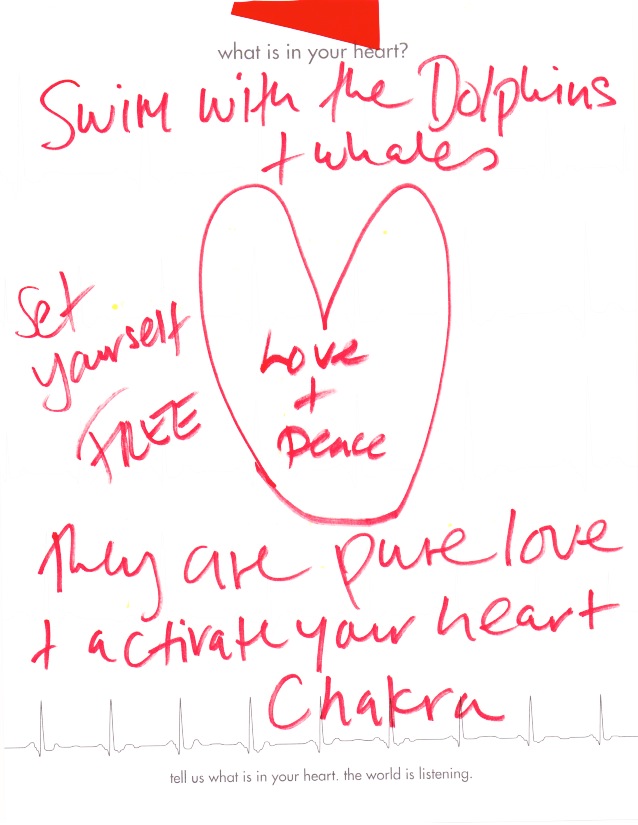 what is in your heart?
Swim with the Dolphins
+ whales
Set
yourself
FREE
Love
+
peace
They are pure love
+ activate your heart
Chakra
tell us what is in your heart. the world is listening.